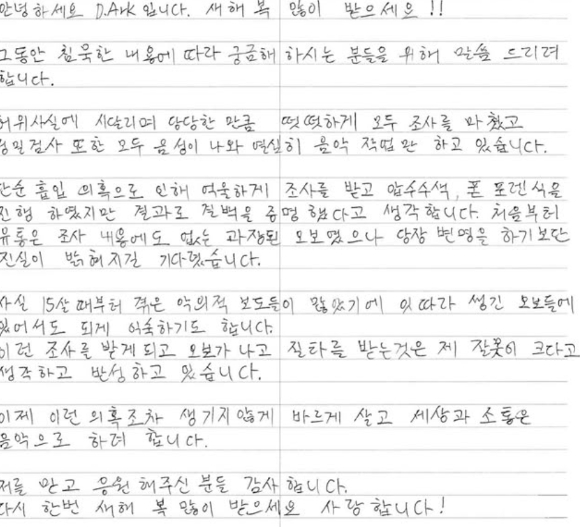 안녕하세요 D.Ark 입니다. 새해 복 많이 받으세요!!
그동안 침묵한 내용에 따라 궁금해 하시는 분들을 위해 말씀 드리려
합니다.
허위사실에 시달리며 당당한 만큼 떳떳하게 모두 조사를 마쳤고
정밀검사 또한 모두 음성이 나와 열심히 음악 작업만 하고 있습니다.
단순 흡입 의혹으로 인해 억울하게 조사를 받고 압수수색, 폰 포렌식을
진행 하였지만 결과로 결백을 증명 했다고 생각합니다. 처음부터
유통은 조사 내용에도 없는 과장된 오보였으나 당장 변명을 하기보단
진실이 밝혀지길 기다렸습니다.
사실 15살 때부터 겪은 악의적 보도들이 많았기에 잇따라 생긴 오보들에
있어서도 되게 익숙하기도 합니다.
이런 조사를 받게 되고 오보가 나고 질타를 받는것은 제 잘못이 크다고
생각하고 반성하고 있습니다.
이제 이런 의혹조차 생기지않게 바르게 살고 세상과 소통은
음악으로 하려 합니다.
저를 믿고 응원 해주신 분들 감사 합니다.
다시 한번 새해 복 많이 받으세요 사랑합니다!